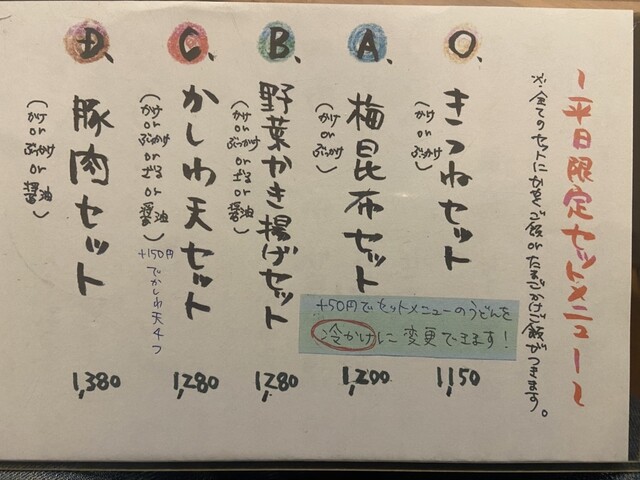 ~平日限定セットメニュー~
※全てのセットにかやくご飯orたまごかけご飯がつきます。
O、
きつねセット
(かけorぶっかけ)
1,150
A、
梅昆布セット
(かけorぶっかけ)
1,200
B、
野菜かき揚げセット
(かけorぶっかけorざるor醤油)
1,280
C、
かしわ天セット
(かけorぶっかけorざるor醤油)
+150円でかしわ天4つ
1,280
D、
豚肉セット
(かけorぶっかけor醤油)
1,380
+50円でセットメニューのうどんを
冷かけに変更できます!